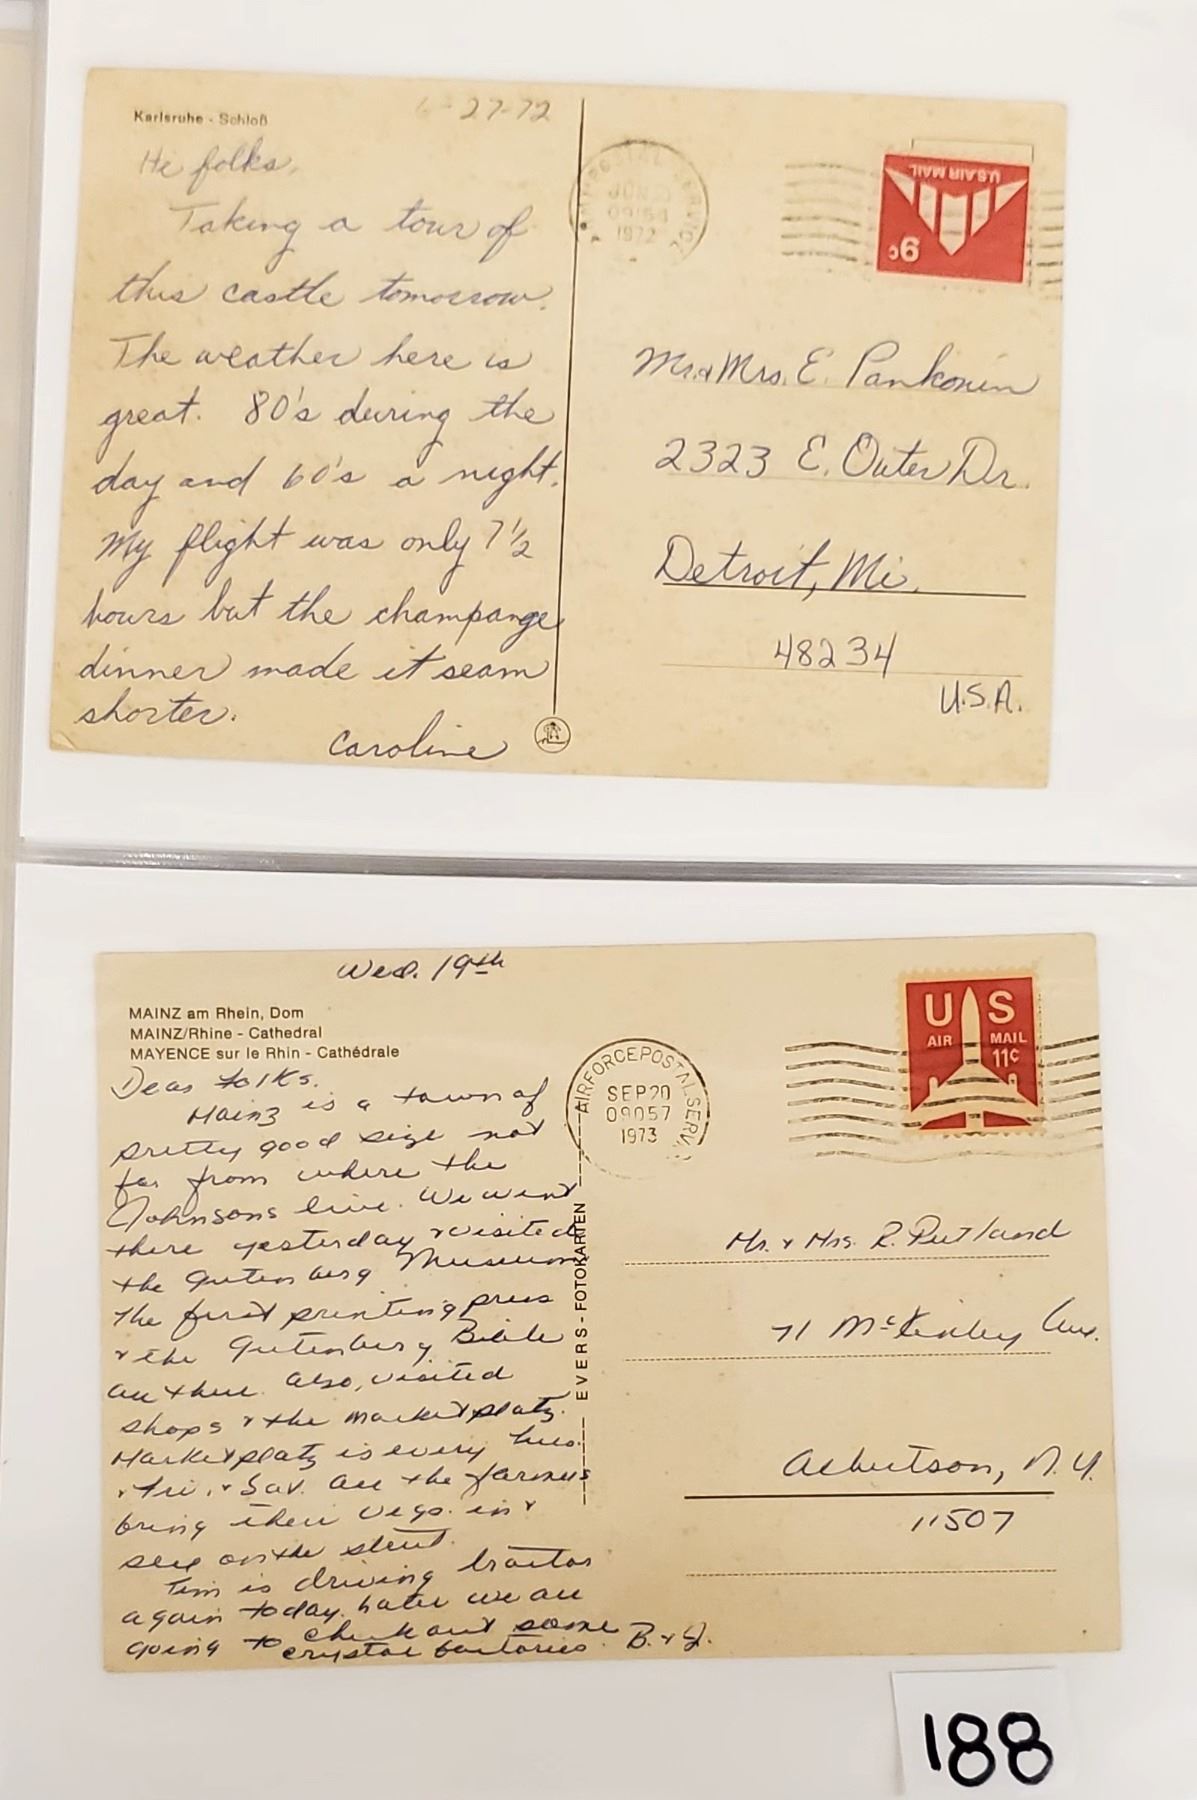 Karlsruhe - Schloß
6-27-72
Hi folks,
Taking a tour of
this castle tomorrow.
The weather here is
great. 80's during the
day and 60's a night.
My flight was only 7 1/2
hours but the champange
dinner made it seam
shorter.
Caroline
POSTAL SERVICE
JUN
1972
U.S. AIR MAIL
9c
Mr. & Mrs. E. Pankonin
2323 E. Outer Dr.
Detroit, Mi.
48234
U.S.A.
Wed. 19th
MAINZ am Rhein, Dom
MAINZ/Rhine - Cathedral
MAYENCE sur le Rhin - Cathédrale
Dear folks.
Mainz is a town of
pretty good size not
far from where the
Johnsons live. We went
there yesterday & visited
the Gutenberg Museum
The first printing press
& the Gutenberg Bible
are there. Also, visited
shops & the Marketplatz.
Marketplatz is every Tues.
& Fri. & Sat. All the farmers
bring their vegs. in &
sell on the street.
Tim is driving tractor
again today. Later we are
going to check out some
crystal factories. B. & J.
EVERS-FOTOKARTEN
AIR FORCE POSTAL SERV.
SEP 20
09057
1973
US
AIR MAIL
11¢
Mr. & Mrs. R. Rutland
71 McKinley Ave.
Albertson, N.Y.
11507
188